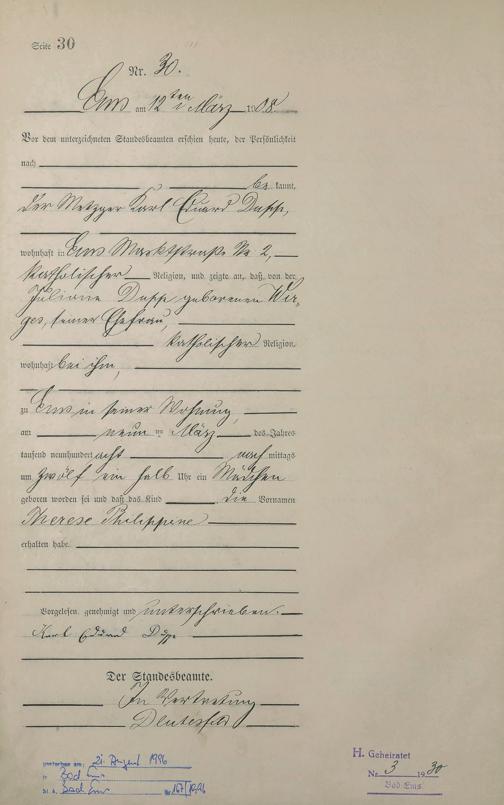 Seite 30
Nr. 30.
Ems am 12ten März 1908
Vor dem unterzeichneten Standesbeamten erschien heute, der Persönlichkeit
nach
be kannt,
der Metzger Karl Eduard
wohnhaft in Ems Marktstraße No 2,
katholischer Religion, und zeigte an, daß von der
Juliane geborenen Wir-
ges, seiner Ehefrau,
katholischer Religion,
wohnhaft bei ihm,
zu Ems in seiner Wohnung,
am neun ten März des Jahres
tausend neunhundert acht nach mittags
um zwölf ein halb Uhr ein Mädchen
geboren worden sei und daß das Kind die Vornamen
Therese Philippine
erhalten habe.
Vorgelesen, genehmigt und unterschrieben.
Karl Eduard
Der Standesbeamte.
In Vertretung
am: 21. August 1996
in Bad Ems
St. A. Bad Ems Nr 167/1996
H. Geheiratet
Nr. 3 1930
Bad Ems